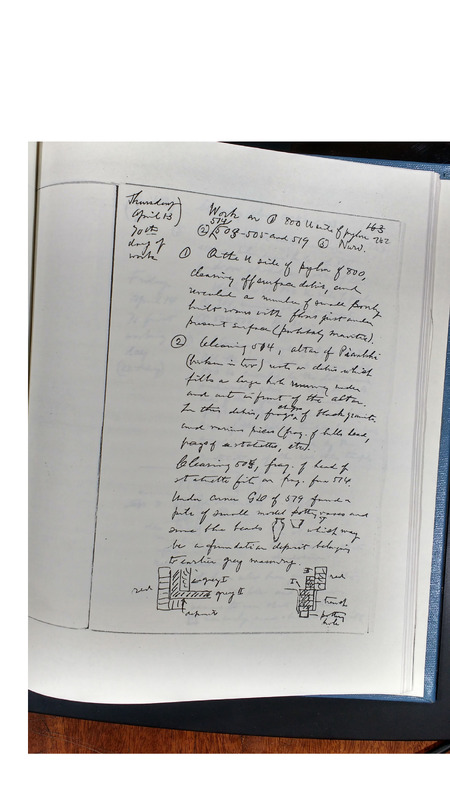 163
Thursday
April 13
70th
day of
work
Work on ① 800 N side of pylon 262
514
② 503-505 and 519 ③ Nuri.
① On the N side of pylon of 800,
clearing off surface debris, and
revealed a number of small poorly
built rooms with floors just under
present surface (probably Meroitic).
② Clearing 514, altar of Piankhi
(broken in two) rests on debris which
fills a large hole running under
and out in front of the altar.
In this debris, frags of black granite
and various pieces (frag. of head,
frags of statuettes, etc).
Clearing 508, frag. of head of
statuette fits on frag. from 514.
Under corner of 519 found a
pile of small model pottery vases and
some blue beads which may
be a foundation deposit belonging
to earlier grey masonry.
red
grey I
grey II
deposit
I
II
red
trench
pottery
hole